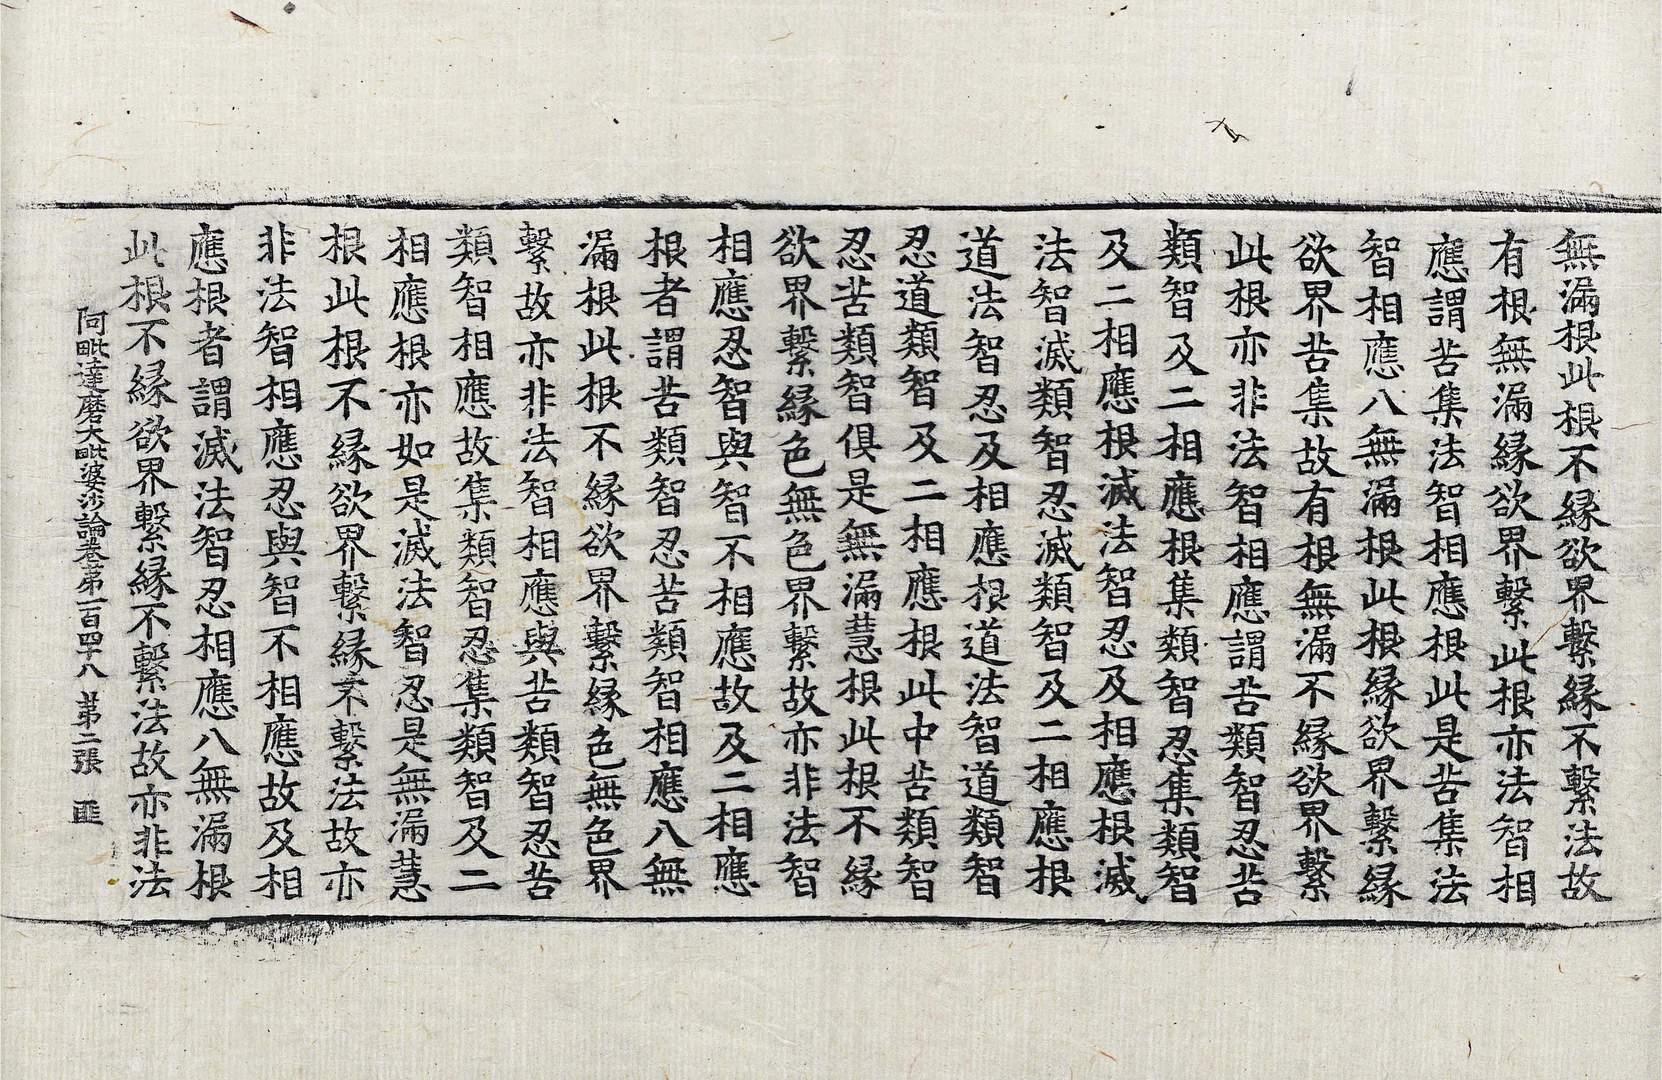 無漏根此根不緣欲界繫緣不繫法故
有根無漏緣欲界繫此根亦法智相
應謂苦集法智相應根此是苦集法
智相應八無漏根此根緣欲界繫緣
欲界苦集故有根無漏不緣欲界繫
此根亦非法智相應謂苦類智忍苦
類智及二相應根集類智忍集類智
及二相應根滅法智忍及相應根滅
法智滅類智忍滅類智及二相應根
道法智忍及相應根道法智道類智
忍道類智及二相應根此中苦類智
忍苦類智俱是無漏慧根此根不緣
欲界繫緣色無色界繫故亦非法智
相應忍智與智不相應故及二相應
根者謂苦類智忍苦類智相應八無
漏根此根不緣欲界繫緣色無色界
繫故亦非法智相應與苦類智忍苦
類智相應故集類智忍集類智及二
相應根亦如是滅法智忍是無漏慧
根此根不緣欲界繫緣不繫法故亦
非法智相應忍與智不相應故及相
應根者謂滅法智忍相應八無漏根
此根不緣欲界繫緣不繫法故亦非法
阿毗達磨大毗婆沙論卷第一百四十八 第二張 匪